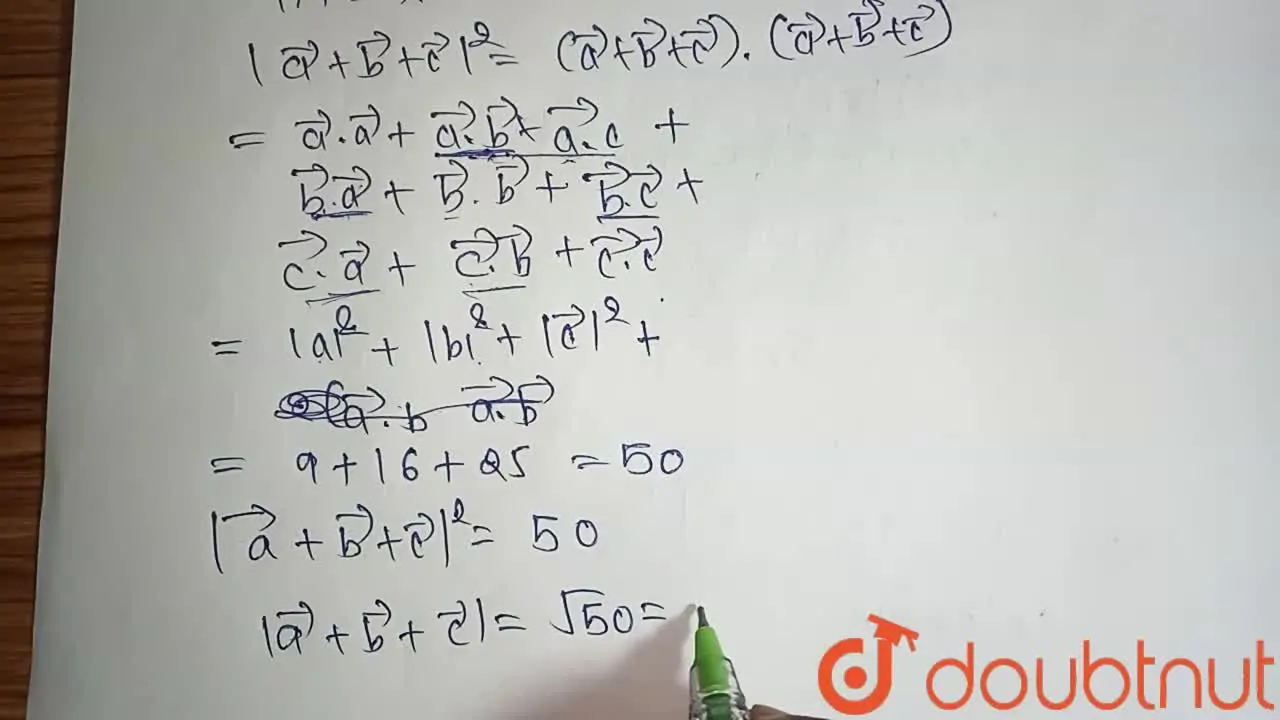 |a⃗+b⃗+c⃗|²= (a⃗+b⃗+c⃗).(a⃗+b⃗+c⃗)
= a⃗.a⃗+ a⃗.b⃗+ a⃗.c +
b⃗.a⃗ + b⃗.b⃗ + b⃗.c⃗ +
c⃗.a⃗ + c⃗.b⃗ + c⃗.c⃗
= |a|² + |b|² + |c⃗|² +
a⃗.b a⃗.b⃗
= 9+16+25 =50
|a⃗ + b⃗+c⃗|²= 50
|a⃗ + b⃗ + c⃗|= √50=
doubtnut